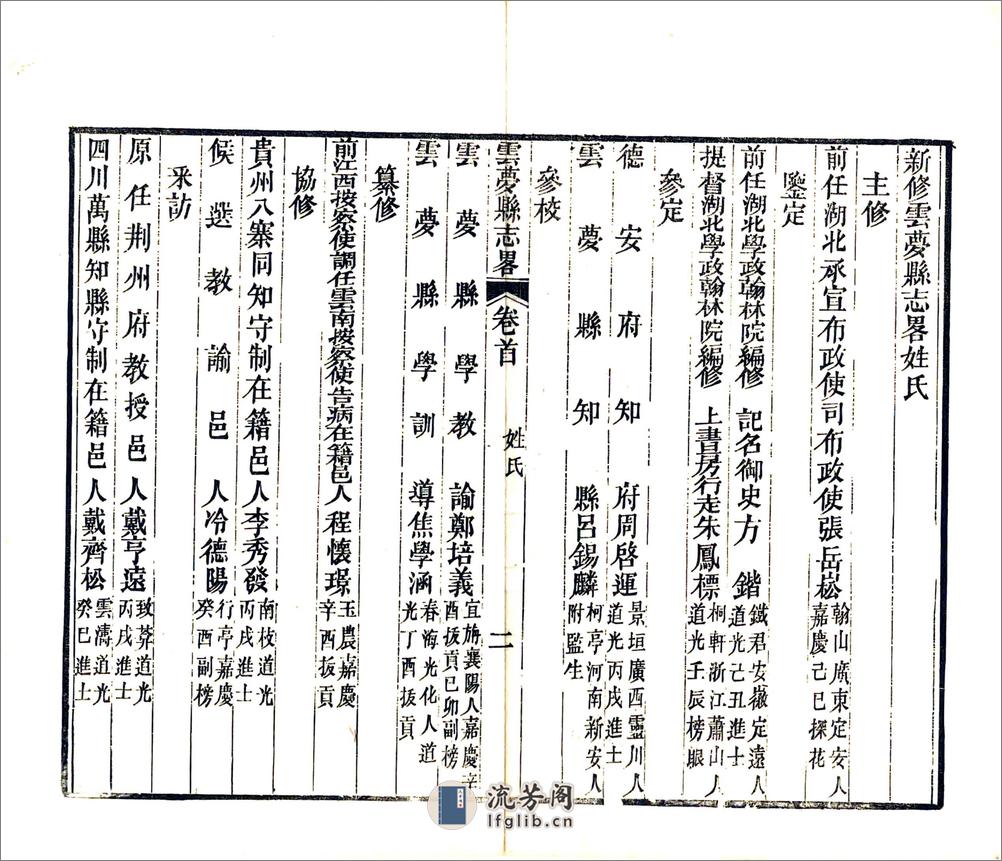 新修雲夢縣志畧姓氏
主修
前任湖北承宣布政使司布政使張岳崧
翰山廣東定安人
嘉慶己巳探花
鑒定
前任湖北學政翰林院編修 記名御史方 鍇
鐵君安徽定遠人
道光己丑進士
提督湖北學政翰林院編修 上書房行走朱鳳標
桐軒浙江蕭山人
道光壬辰榜眼
參定
德安府知府周啓運
景垣廣西靈川人
道光丙戌進士
雲夢縣知縣呂錫麟
柯亭河南新安人
附監生
參校
雲夢縣志畧 卷首 姓氏 二
雲夢縣學教諭鄭培義
宜旃襄陽人嘉慶辛
酉拔貢已卯副榜
雲夢縣學訓導焦學涵
春海光化人道
光丁酉拔貢
纂修
前江西按察使調任雲南按察使告病在籍邑人程懷璟
玉農嘉慶
辛酉拔貢
協修
貴州八寨同知守制在籍邑人李秀發
南枝道光
丙戌進士
候選教諭邑人冷德陽
行亭嘉慶
癸酉副榜
采訪
原任荆州府教授邑人戴亨遠
致莽道光
丙戌進士
四川萬縣知縣守制在籍邑人戴齊松
雲濤道光
癸巳進士
流芳阁
lfglib.cn